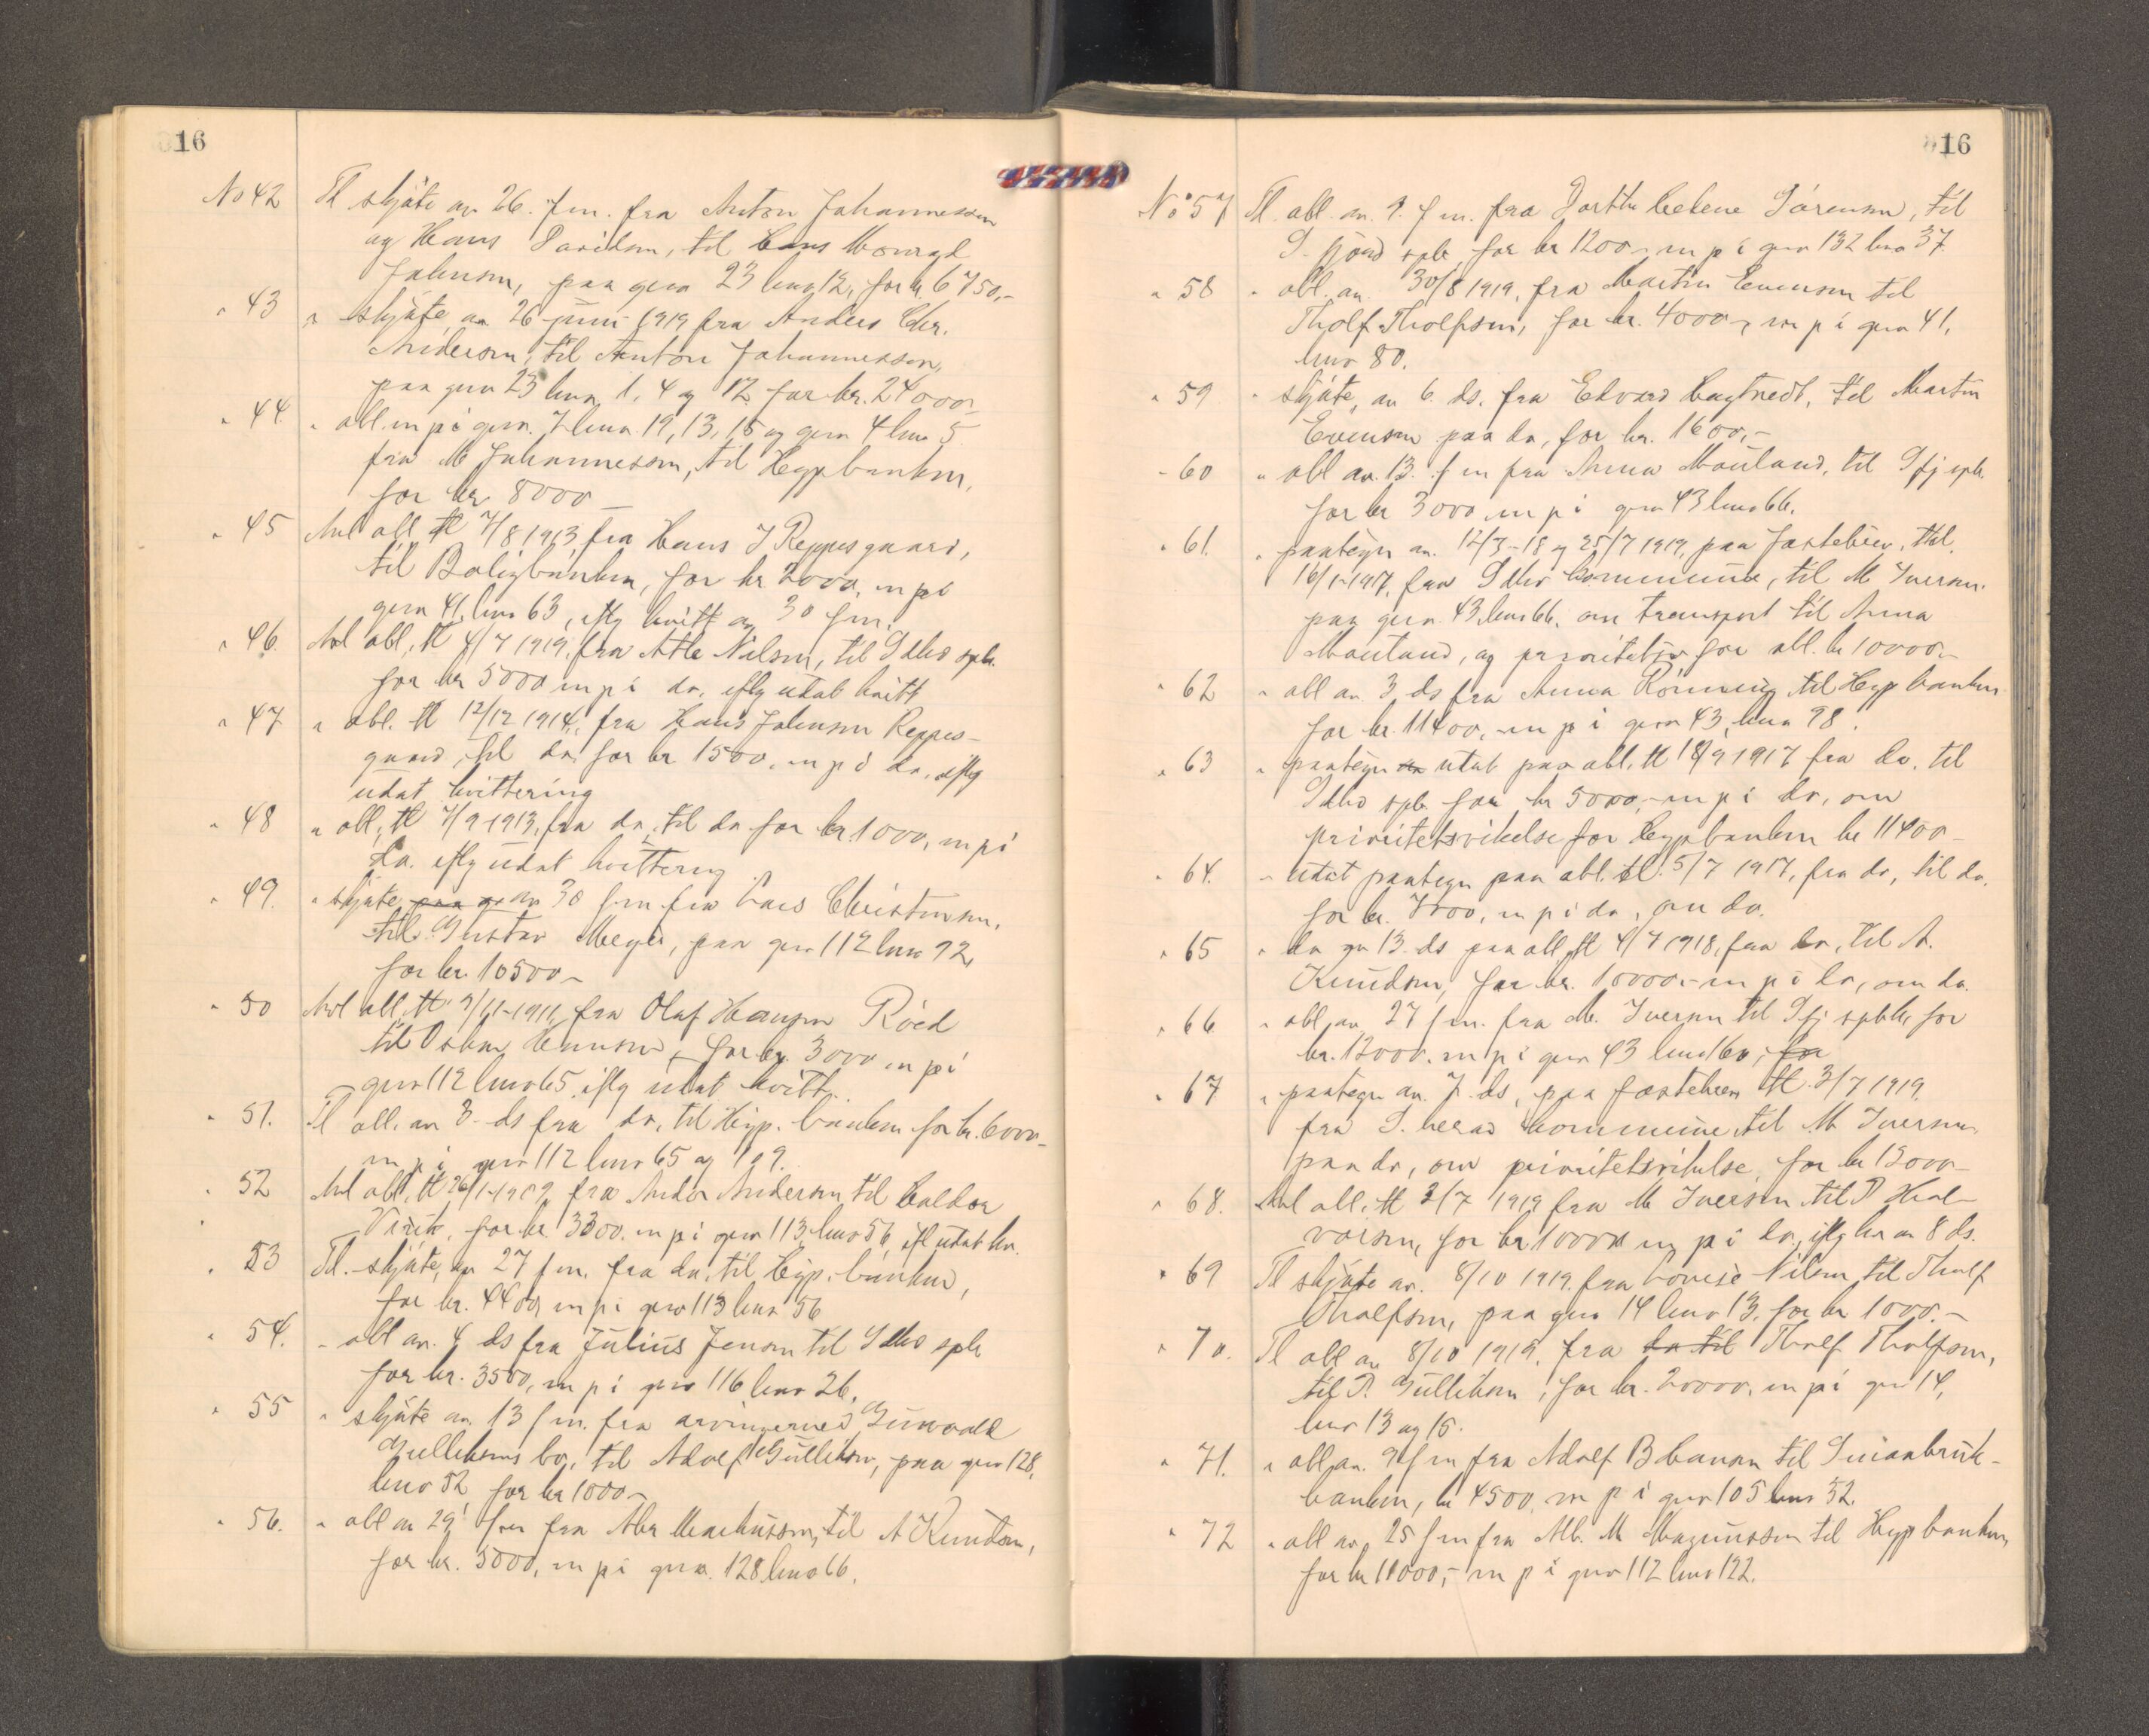 16
No 42 Tl skjöte av 26. f m. fra Anton Johannessen
og Hans Davidsen, til Hans Margel
Johnsen, paa gno 23 bno 12, for kr. 6750,-
" 43 " skjöte av 26 juni 1919 fra Anders Chr.
Andersen, til Anton Johannessen,
paa gno 23 bno 1, 4 og 12 for kr. 24000,-
" 44. " obl. m p i gno. 7 bno 19, 13, 15 og gno 4 bno 5
fra M Johannessen, til Hypbanken,
for kr. 8000 -
" 45 Avl obl. tl 7/8 1913 fra Hans J Reppesgaard,
til Boligbanken, for kr 2000, m p i
gno 41, bno 63, iflg kvitt av 30 f m.
" 46. Avl obl. tl 4/7 1919, fra Atle Nilsen, til Sdhs spb.
for kr 5000 m p i do. iflg udat kvitt
" 47 " obl. tl 12/12 1914, fra Hans Johnsen Reppes-
gaard, til do, for kr 1500, m p i do, iflg
udat kvittering
" 48 " obl, tl 7/9 1913, fra do, til do for kr. 1000, m p i
do. iflg udat kvittering
" 49. " skjöte paa g av 30 f m fra Lars Christensen,
til Gustav Meyer, paa gno 112 bno 92,
for kr. 10500 -
" 50 Avl obl, tl 3/11-1911, fra Olaf Hansen Röed
til Oskar Hansen, for kr. 3000 m p i
gno 112 bno 65. iflg udat kvitt.
" 51. Tl obl. av 3. ds fra do, til Hyp. banken for kr. 6000-
m p i gno 112 bno 65 og 109.
" 52 Avl obl, tl 26/1-1909, fra Andor Andersen til Haldor
Virik, for kr 3300. m p i gno 113, bno 56, ifl udat kv.
" 53 Tl. skjöte, av 27 f m. fra do, til Hyp. banken,
for kr. 4400, m p i gno 113 bno 56
" 54. - obl av. 4 ds fra Julius Jensen til Sdhs spb
for kr. 3500, m p i gno 116 bno 26,
" 55 " skjöte av. 13 f m. fra arvingerne i Gunvald
Gulliksens bo, til Adolf Gulliksen, paa gno 128,
bno 52 for kr 1000 -
" 56. " obl av 29 f m fra Abr Markussen, til A Knudsen,
for kr. 3000, m p i gno. 128 bno 66.
16
No 57 Tl. obl. av. 9. f m. fra Dorthe Helene Sörensen, til
S. fjord spb, for kr 1200,- m p i gno 132 bno 37
" 58 " obl. av. 30/8 1919, fra Martin Evensen til
Tholf Tholfsen, for kr. 4000 -, m p i gno 41,
bno 80.
" 59 " skjöte, av 6. ds. fra Edvard Bugtnedt, til Martin
Evensen paa do, for kr. 1600,-
- 60 " obl av. 13. f m fra Anna Mouland, til Sfj spb.
for kr 3000 m p i gno 43 bno 66.
" 61. " paategn av. 12/3-18 og 25/7 1919, paa fæstebrev, tl
16/1-1917, fra Sdhs kommune, til M Iversen.
paa gno. 43, bno 66. om transport til Anna
Mouland, og prioritetsv for obl. kr 10000.-
" 62 " obl av 3 ds fra Anna Rönning til Hyp banken
for kr. 11400, m p i gno 43, bno 98.
" 63 " paategn av udat paa obl, tl 18/9 1917 fra do, til
Sdhs spb. for kr 5000,- m p i do, om
prioritetsvikelse for Hypbanken kr 11400 -
" 64. - udat paategn paa obl. tl. 5/7 1917, fra do, til do.
for kr. 7000, m p i do, om do.
" 65 " do av 13. ds paa obl, tl 4/7 1918, fra do, til A.
Knudsen, for kr. 10000.- m p i do, om do.
" 66 " obl, av 27 f m. fra M. Iversen til Sfj spbk, for
kr. 12000. m p i gno 43 bno 160, for
" 67 " paategn av. 7. ds, paa fæstebrev tl. 3/7 1919
fra S. herad kommune til M Iversen
paa do, om prioritetsvikelse, for kr 12000 -
" 68. Avl obl. tl 3/7 1919 fra M Iversen til P. Hal-
vorsen, for kr 10000 m p i do, iflg kv av 8 ds.
" 69 Tl skjöte av. 8/10 1919. fra Lovise Nilsen til Tholf
Tholfsen, paa gno 14 bno 13, for kr 1000.-
" 70. Tl obl av 8/10 1919. fra do til Tholf Tholfsen,
til P. Gulliksen, for kr. 20000. m p i gno 14,
bno 13 og 15.
" 71. " obl, av. 9 f m fra Adolf B Hansen til Smaabruk-
banken, kr 4500, m p i gno 105 bno 52.
" 72 " obl av. 25 f m fra Alb. M Magnussen til Hyp banken,
for kr 11000,- m p i gno 112 bno 122.